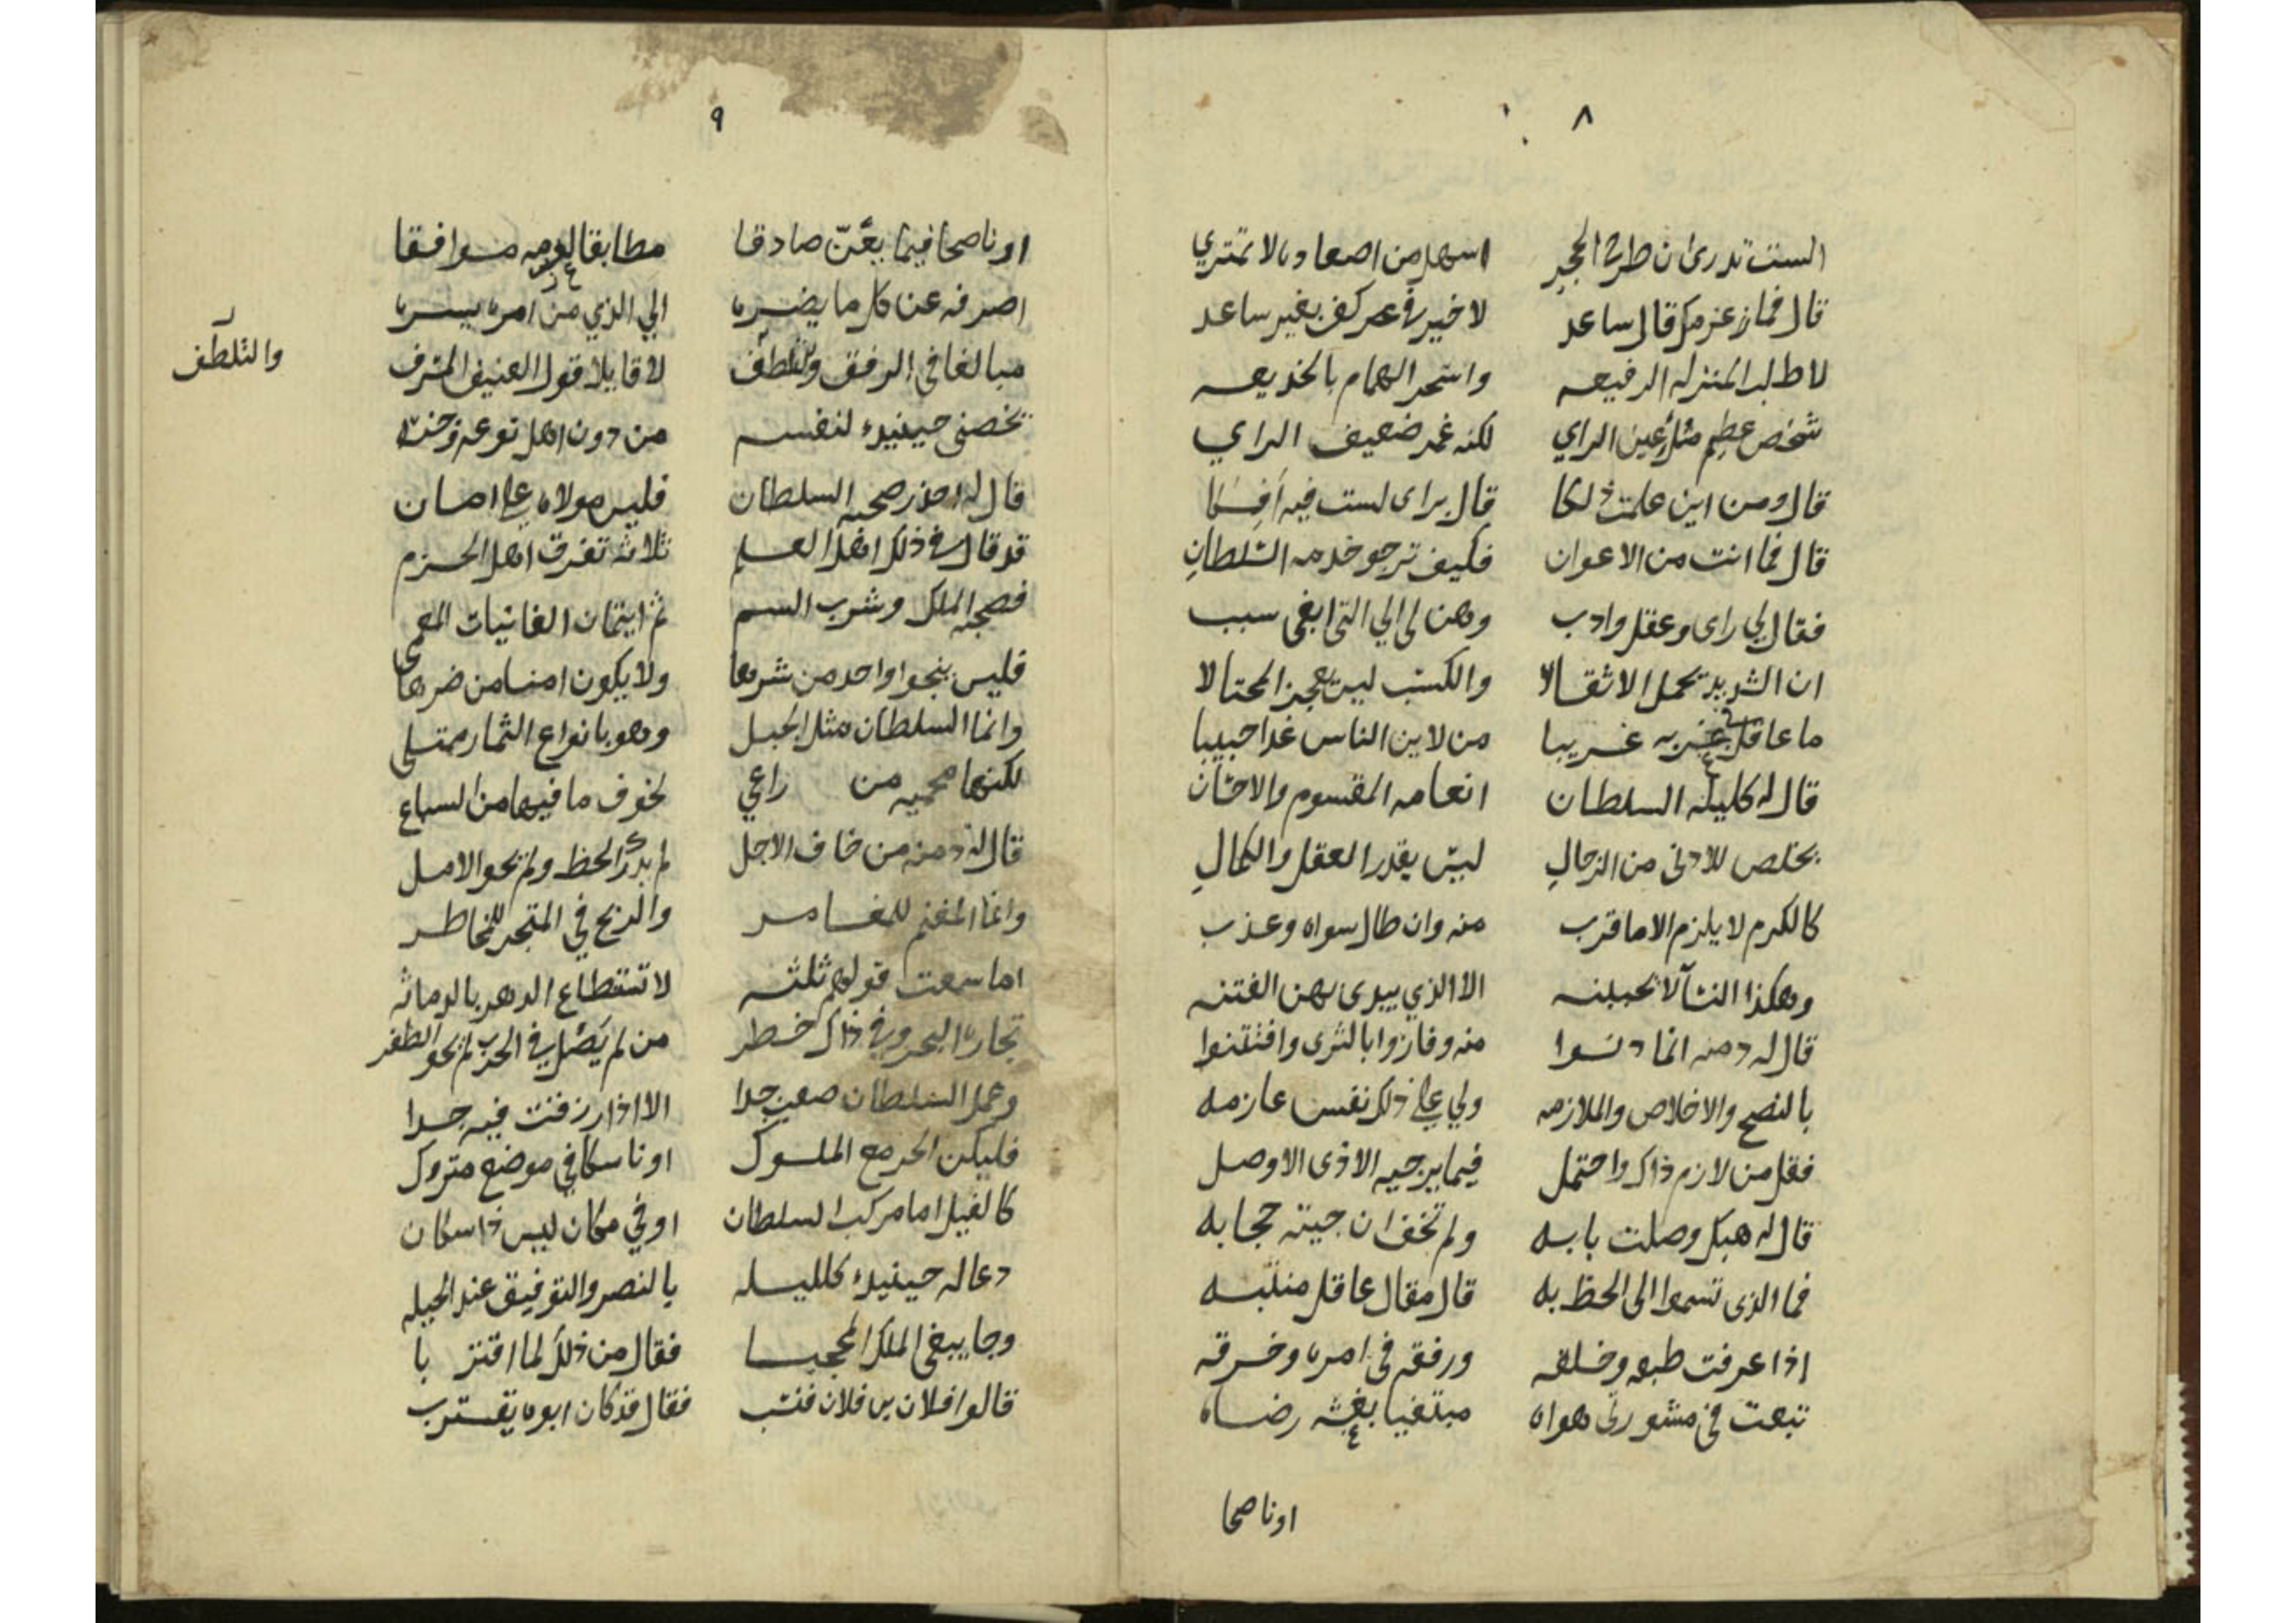 ٨
الست تدرى ان طرح الحجر اسهل من اصعاده بالا تمتري
قال فما تزعزم قال ساعد لا خير في كف بغير ساعد
لاطلب المنزله الرفيعه واسحر الهمام بالخديعه
شخص عظيم مثل عين الراي لكنه غمر ضعيف الراي
قال ومن اين علمت ذلكا قال براى لست فيه افكا
قال فما انت من الاعوان فكيف ترجو خدمه السلطان
فقال لي راى وعقل وادب وهن لى الي التى ابغى سبب
ان الشديد يحمل الاثقالا والكسب ليس يعجز المحتالا
ما عاقل بغربه غريبا من لاين الناس غدا حبيبا
قال له كليله السلطان انعامه المقسوم والاحسان
يختص للادنى من الرجال ليس بقدر العقل والكمال
كالكرم لا يلزم الا ما قرب منه وان طال سواه وعذب
وهكذا النسآ لا يحببنه الا الذي يبدى لهن الفتنه
قال له دمنه انما دنسوا منه وفازوا بالثرى وافتتنوا
بالنصح والاخلاص والملازمه ولي على ذلك نفس عازمه
فقل من لازم ذاك واحتمل فيما يرجيه الاذى الا وصل
قال له هبك وصلت بابه ولم تخف ان جيته حجابه
فما الذى تسموا الى الحظ به قال مقال عاقل منتبه
اذا عرفت طبعه وخلقه ورفقه فى امره وخرقه
تبعت في مشورتى هواه مبتغيا بغشه رضاه
اوناصحا
٩
اوناصحا فيما يعنّ صادقا مطابقا لعزمه موافقا
اصرفه عن كل ما يضره الي الذي من امره يسره
مبالغا في الرفق والتلطف لا قايلا قول العنيف المشرف
والتلطف
تخصنى حينيذ لنفسه من دون اهل نوعه وجنسه
قال له احذر صحبه السلطان فليس مولاه على امان
قد قال في ذلك اهل العلم ثلاثه تفرق اهل الحزم
فصحبه الملك وشرب السم ثم ايتمان الغانيات المعمى
فليس ينجوا واحد من شرها ولا يكون امنا من ضرها
وانما السلطان مثل الجبل وهو بانواع الثمار ممتلى
لكنها محميه من راعي لخوف ما فيها من السباع
قال له دمنه من خاف الاجل لم يدرك الحظ ولم يحو الامل
وانما المغنم للمغامر والربح في المتجر للمخاطر
اما سمعت قولهم ثلثه لا تستطاع الدهر بالدماثه
تجاره البحر وفي ذاك خطر من لم يصل في الحرب لم يحو الظفر
وعمل السلطان صعب جدا الا اذا رزقت فيه جدا
فليكن الحر مع الملوك او ناسكا في موضع متروك
كالفيل اما مركب السلطان او في مكان ليس ذا سكان
دعا له حينيذ كليله بالنصر والتوفيق عند الحيله
وجا يبغى الملك المحجبا فقال من ذلك لما اقتربا
قالوا فلان بن فلان فنسب فقال قد كان ابوه يقترب